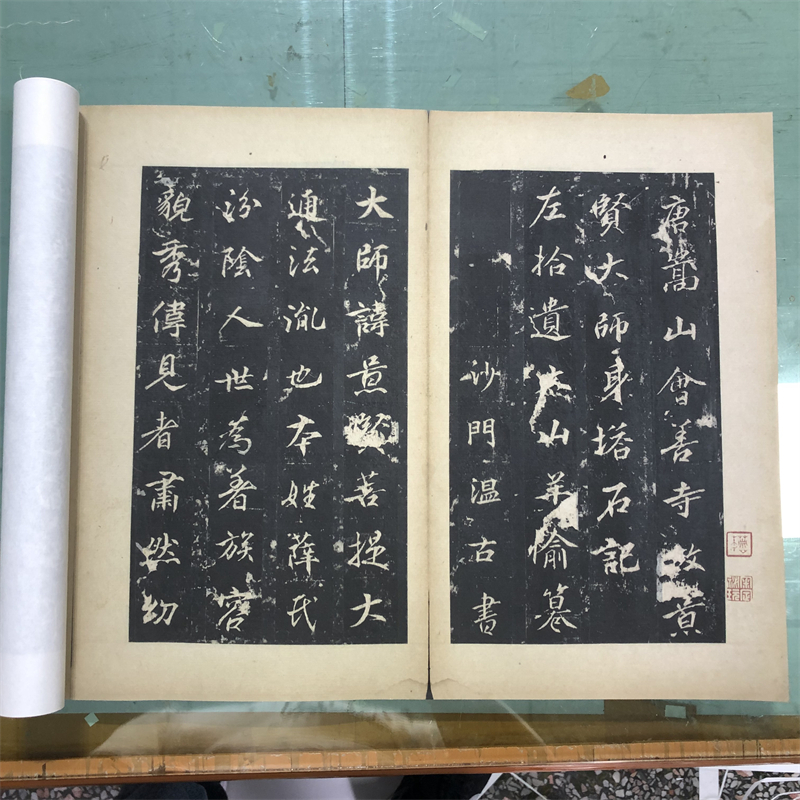 唐嵩山會善寺故景
賢大師身塔石記
左拾遺山羊愉
沙門温古書
大師諱景賢菩提大
通法胤也本姓薛氏
汾陰人世為著族容
貌秀偉見者肅然幼